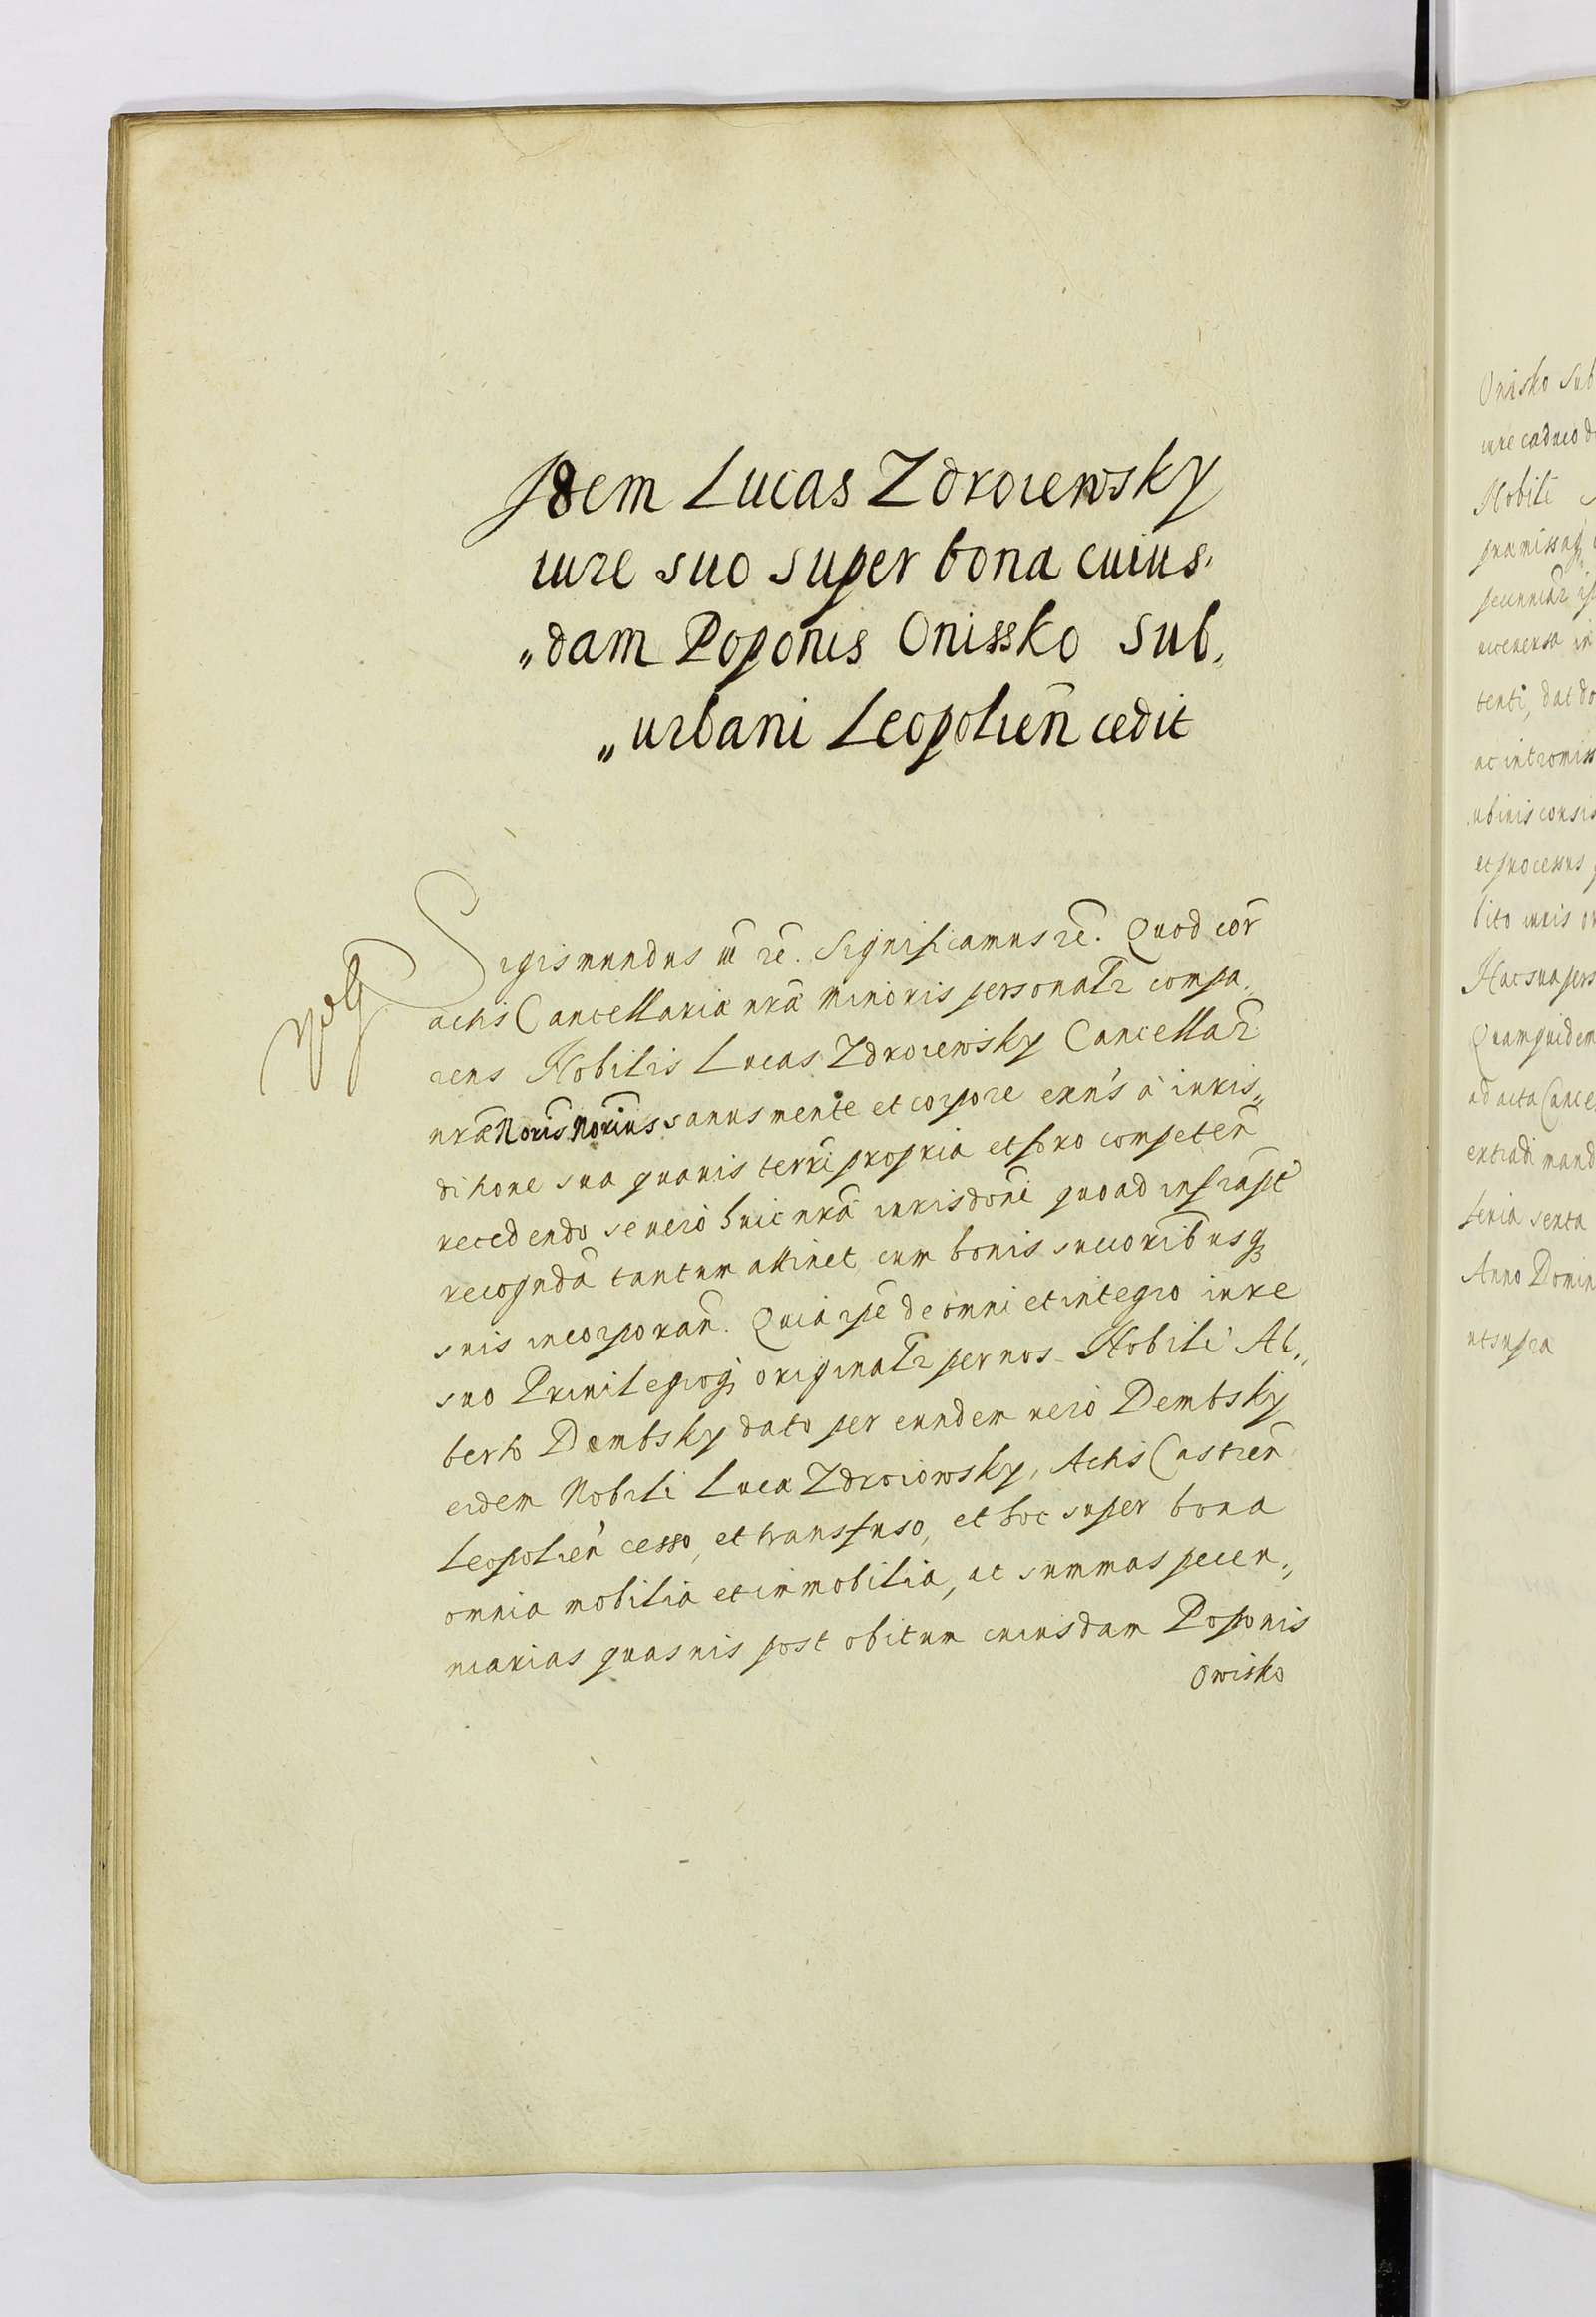 Idem Lucas Zdroiewsky
iure suo super bona cuius,
„dam Poponis Onissko Sub,
„urbani Leopolien̄ cedit
Sigismundus iii rc̄. Significamus rc̄. Quod cor̄
actis Cancellariæ nr̄æ Minoris personalr̄ compa,
rens Nobilis Lucas Zdroiewsky Cancellar̄
nr̄æ Noris Norius sanus mente et corpore exn's à iuris,,
ditione sua quauis terrī propria et foro competen̄
recedendo se uero huic nr̄æ iurisdoni quoad infrapt
recogndā tantum attinet cum bonis succoribusq
suis incorporan̄. Quia ipē de omni et integro iure
suo Priuilegioq originalr̄ per nos Nobili Al,,
berto Dembsky dato per eundem uero Dembsky
eidem Nobili Lucæ Zdroiowsky, Actis Castren̄
Leopolien̄ cesso, et transfuso, et hoc super bona
omnia mobilia et immobilia, ac summas pecun,,
niarias quasuis post obitum cuiusdam Poponis
Onisko
Onisko Sub
iure caduco
Nobili
præmissaq
uiceuersa in
tenti, dat do
ac intromiss
ubiuis consis
et processus
bito iuris
Hac sua pers
Quamquidem
ad acta Cance
extradi mand
feria sexta
Anno Domin
ut supra